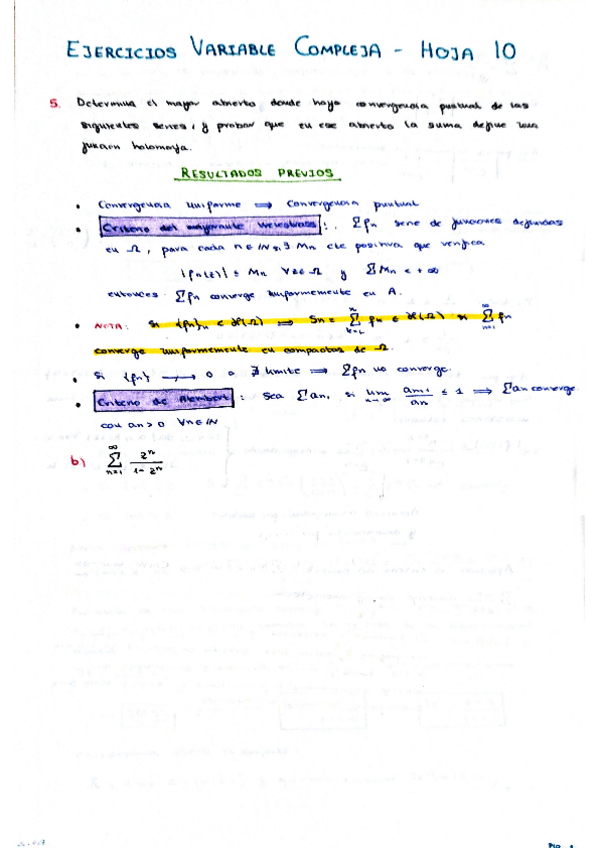 EJERCICIOS VARIABLE COMPLEJA - HOJA 10
5. Determina el mayor abierto donde haya convergencia puntual de las
siguientes series, y probar que en ese abierto la suma define una
función holomorfa.
RESULTADOS PREVIOS
• Convergencia uniforme ⟹ Convergencia puntual
• Criterio del mayorante Weierstrass: Σfn serie de funciones definidas
en Ω, para cada n∈ℕ si ∃ Mn cte positiva que verifica
|fn(z)| ≤ Mn ∀z∈Ω y ΣMn < +∞
entonces Σfn converge uniformemente en A.
• NOTA: Si {fn}n ⊂ H(Ω) ⟹ Sn = Σ fn ∈ H(Ω) si Σ_{n=1}^{∞} fn
converge uniformemente en compactos de Ω.
• Si {fn} ⟶ 0 o ∄ límite ⟹ Σfn no converge.
• Criterio de Alembert: Sea Σan, si lim_{n→∞} an+1/an ≤ 1 ⟹ Σan converge
con an > 0 ∀n∈ℕ
b) Σ_{n=1}^{∞} z^n/(1-z^n)